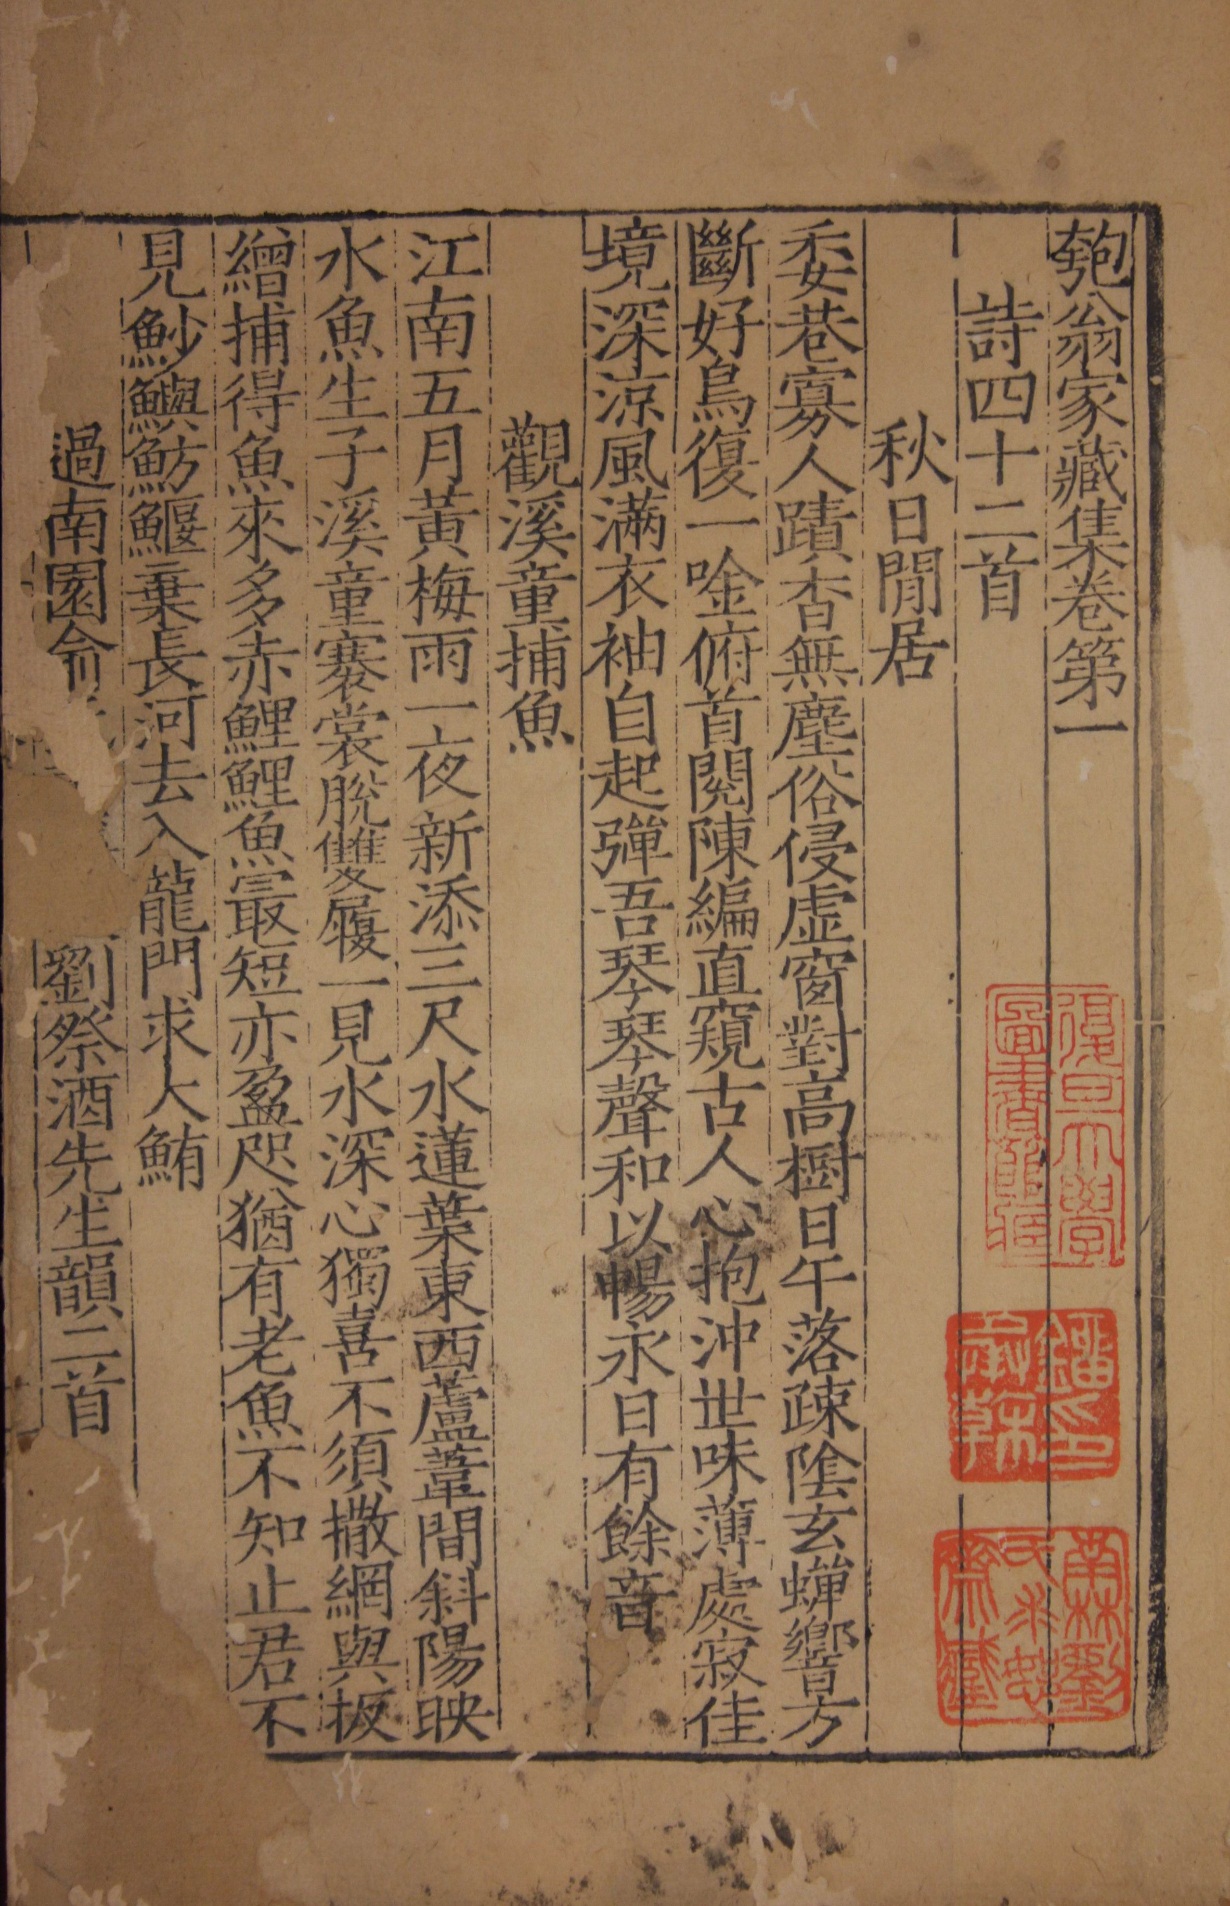 匏翁家藏集卷第一
詩四十二首
秋日閒居
委巷寡人蹟杳無塵俗侵虛窗對高樹日午落疎陰玄蟬響方
斷好鳥復一唫俯首閱陳編直窺古人心抱沖世味薄處寂佳
境深涼風滿衣袖自起彈吾琴琴聲和以暢永日有餘音
觀溪童捕魚
江南五月黃梅雨一夜新添三尺水蓮葉東西蘆葦間斜陽映
水魚生子溪童褰裳脫雙履一見水深心獨喜不須撒網與扳
繒捕得魚來多赤鯉鯉魚最短亦盈咫猶有老魚不知止君不
見魦鱮魴鰋棄長河去入龍門求大鮪
過南園
劉祭酒先生韻二首
復旦大學
圖書館藏